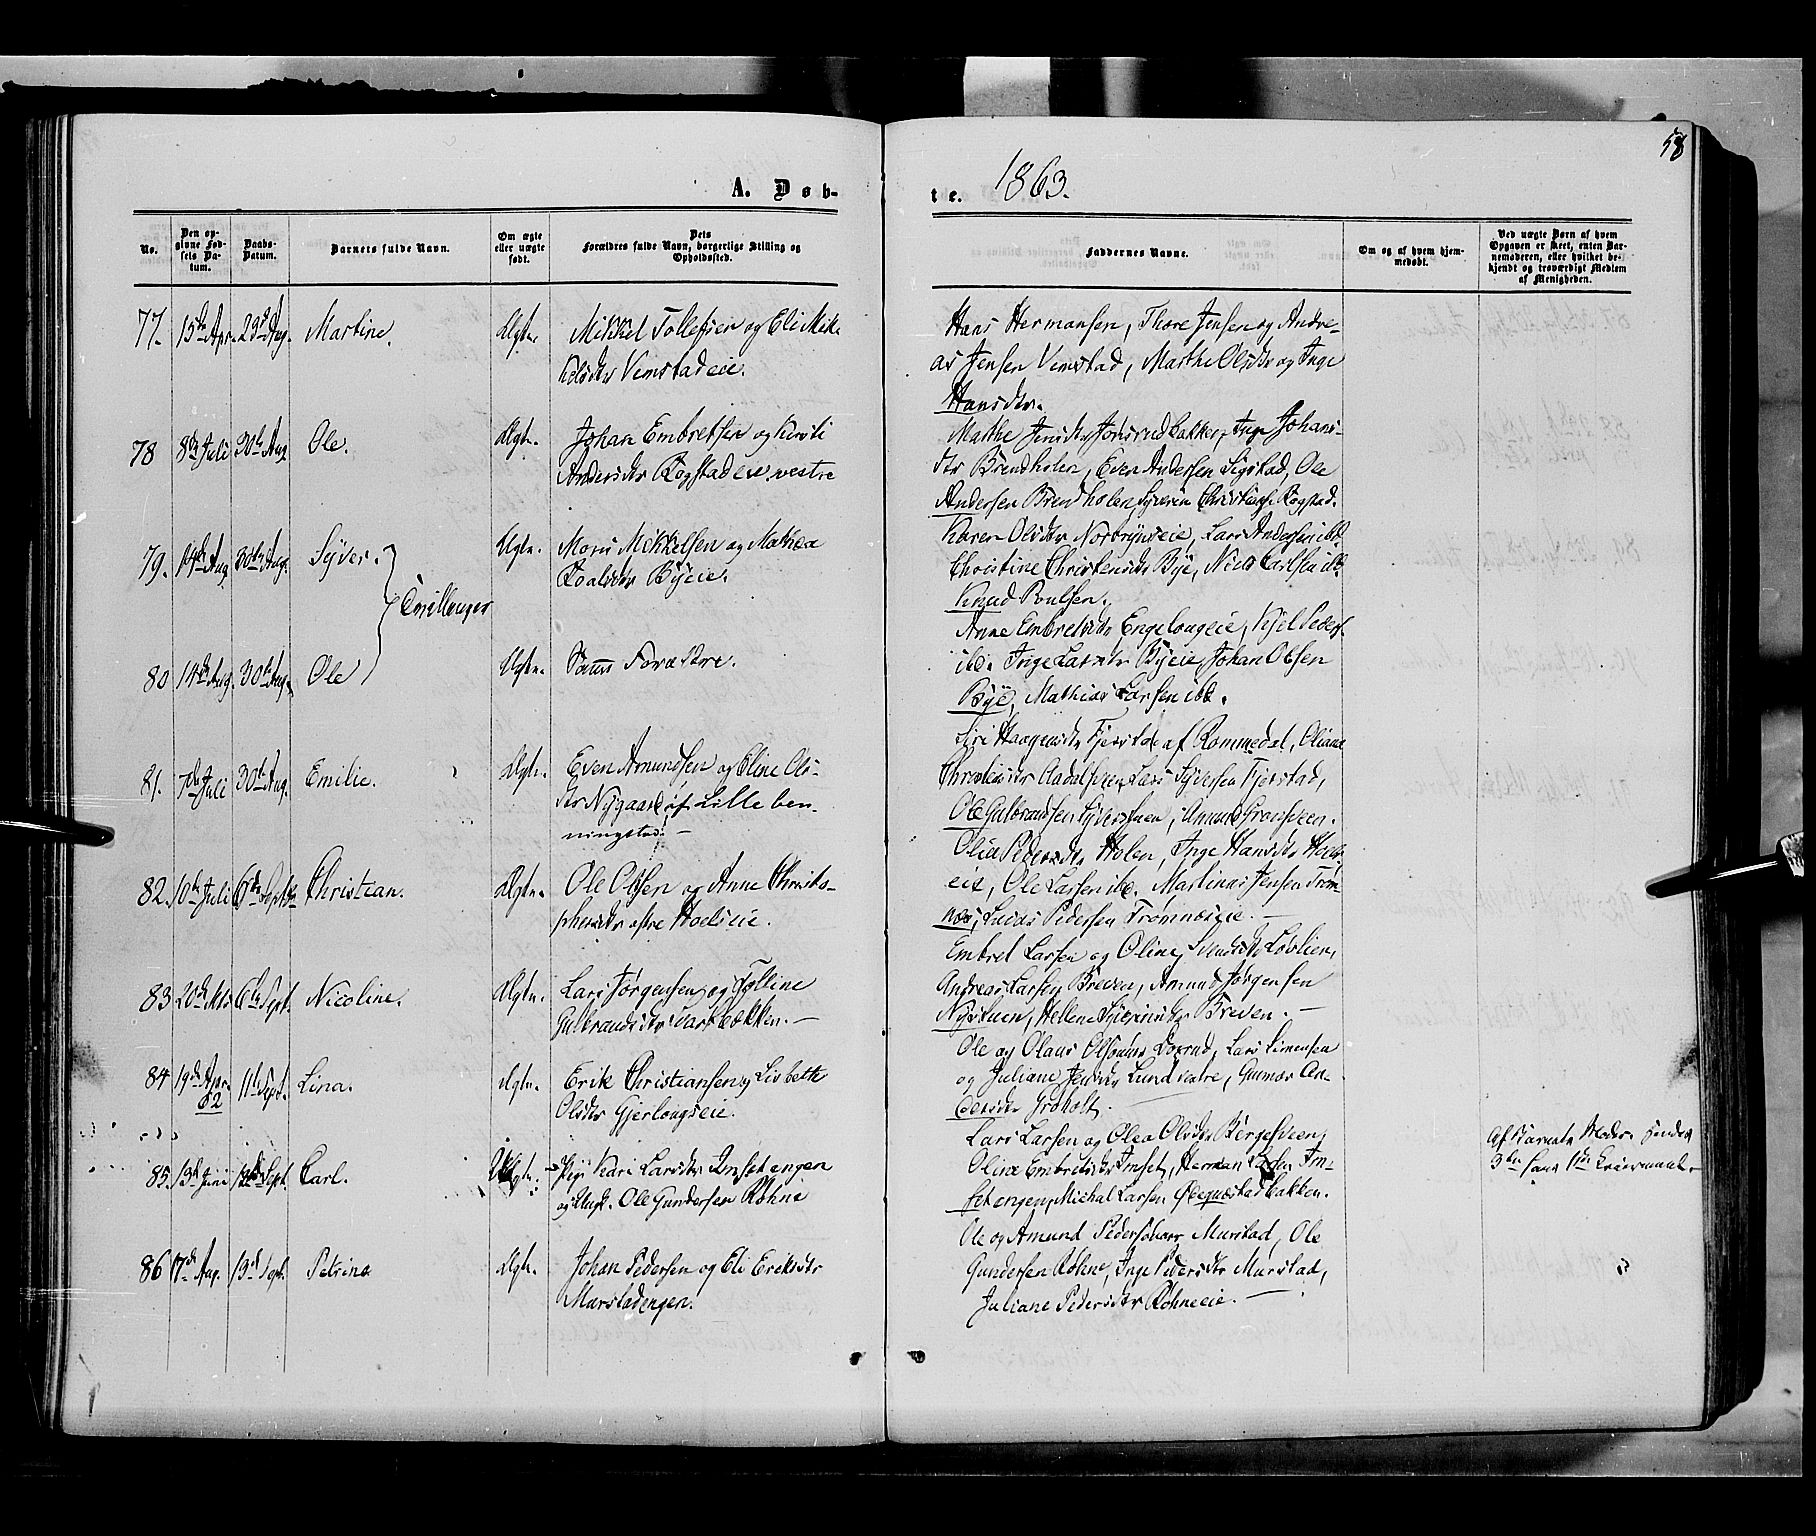 58
A. Døb-
te. 1863.
No.
Den op-
givne Fød-
sels Da-
tum.
Daabs-
Datum.
Barnets fulde Navn.
Om ægte
eller uægte
født.
Dets
Forældres fulde Navn, borgerlige Stilling og
Opholdssted.
Faddernes Navne.
Om og af hvem hjem-
medøbt.
Ved uægte Børn af hvem
Opgaven er skeet, enten Bar-
nemoderen, eller hvilket be-
kjendt og troværdigt Medlem
af Menigheden.
77. 15de Apr. 23de Aug. Martine. Ægte.
Mikkel Tollefsen og Eli Mik-
kelsdtr Vemstadeie.
Hans Hermansen, Thore Jensen og Andre-
as Jensen Vemstad, Marthe Olsdtr og Inge
Hansdtr.
78 8de Juli 30te Aug. Ole. Ægte.
Johan Embretsen og Kirsti
Andersdtr Rogstadeie vestre
Marthe Jensdtr Jonsrudbakken, Inge Johans-
dtr Brendholen, Even Andersen Sigstad, Ole
Andersen Brendholen, Rogstad.
79. 14de Aug. 30te Aug. Syver. Ægte.
Tvillinger
Mons Mikkelsen og Mathea
Roalsdtr Byeie.
Karen Olsdtr Lars Andersen ibd.
Christine Christensdtr Bye, Niels Carlsen ibd.
Knud Poulsen.
80 14de Aug. 30te Aug. Ole Ægte.
Samme Forældre.
Anne Embretsdtr Engelaugeie, Kjel Peders.
ibd. Inge Larsdtr Byeie, Johan Olsen
Bye, Mathias Larsen ibd.
81. 7de Juli 30te Aug. Emilie. Ægte.
Even Amundsen og Eline Ols-
dtr Nygaard af Lille ben-
ningstad. —
Siri Haagensdtr Fjerstad af Rommedal, Oliane
Lars Syversen Fjerstad,
Ole Gulbrandsen Amund
82. 10de Juli 6te Septbr Christian. Ægte.
Ole Olsen og Anne Christo-
phersdtr østre Hoelseie.
Olia Pedersdtr Holen, Inge Hansdtr Hoels-
eie, Ole Larsen ibd. Martinus Jensen Trøm-
næs, Lucas Pedersen Trømnæseie. —
83 20de Mts 6te Sept. Nicoline. Ægte.
Lars Jørgensen og Tolline
Gulbrandsdtr —
Embret Larsen og Oline Svendsdtr Løvlien,
Andreas Larsen Breven, Amund Jørgensen
Nystuen, Hellene Breven. —
84 19de Apr. 11te Sept. Lina. Ægte.
62
Erik Christiansen og Lisbeth
Olsdtr Gjerlougseie.
Ole og Olaus Olsønner Dørrud, Lars Simensen
og Juliane Jensdtr Lund vestre, Gunnor An-
dersdtr Groholt.
85. 13de Juni 13de Sept. Carl. Uægte.
Pige Kari Larsdtr Imsetengen
og Ungk. Ole Gundersen Røhne
Lars Larsen og Olea Olsdtr Bergesveen,
Oline Embretsdtr Imset, Herman Larsen Im-
setengen, Michal Larsen
Af Barnets Moder. Hendes
3die hans 1ste Leiermaal.
86 17de Aug. 13de Sept. Petrine Ægte.
Johan Pedersen og Eli Eriksdtr
Murstadengen.
Ole og Amund Pedersønner Murstad, Ole
Gundersen Røhne, Inge Pedersdtr Murstad,
Juliane Pedersdtr Røhneeie. —